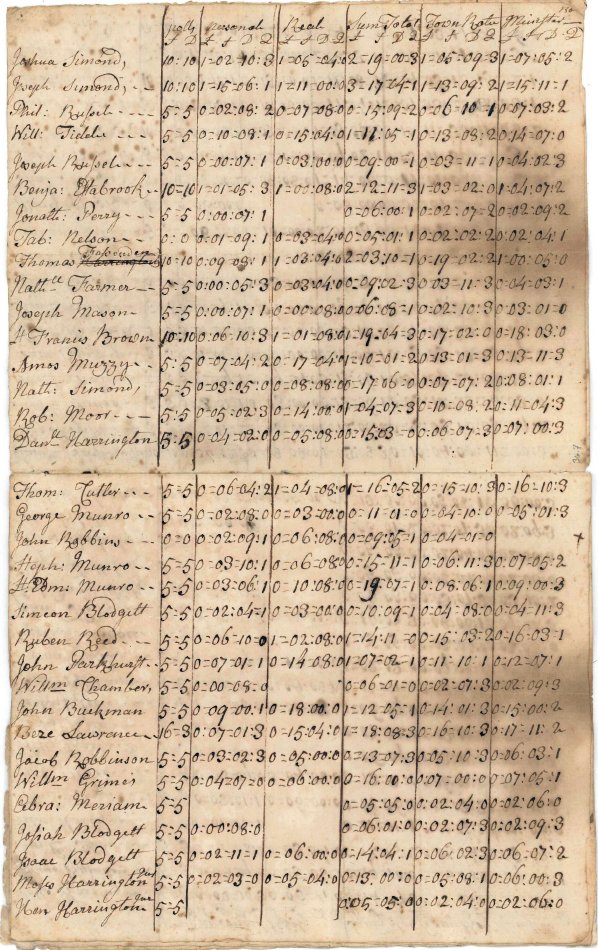 150
Polls Personal Real Sum Total Town Rate Minister
£ D £ £ D Q £ £ D Q £ £ D Q £ £ D Q £ £ D Q
Joshua Simond, 10:10 1=02=10:3 1=05=04:0 2=19=00:3 1=05=09:3 1=07:05:2
Joseph Simond, 10:10 1=15=06:1 1=11=00:0 3=17=04:1 1=13=09:2 1=15:11=1
Phil: Russel 5=5 0=02:08:2 0=07=08:0 0=15:09=2 0=06=10=1 0=07:03:2
Will: Tidd 5=5 0=10=08:1 0=15:04:0 1=05=1 0=13=08:2 0:14=07:0
Joseph Russel 5=5 0=00:07:1 0=03:00:0 0=09:00=1 0=03=11=1 0=04:02:3
Benja: Esabrook 10=10 1=01=05:3 1=00:08:0 2=12=11=3 1=03=02:0 1=04:07:2
Jonath: Perry 5=5 0=00:07:1 0=06=00:1 0=02:07=2 0=02:09:2
Tab: Nelson 0:0 0=01=09:1 0=03=04:0 0=05:01:1 0=02:02:2 0:02:04:1
Thomas 10=10 0:09:08:1 1=03:04:0 2=03:10=1 0=19=02:2 1=00=05:0
Nath:ll Farmer 5=5 0:00=05:3 0=03=04:0 0=09:02:3 0=03=11=3 0=04=03:1
Joseph Mason 5=5 0:00:07:1 0=00:08:0 0=06:08=1 0=02:10:3 0=03:01=0
Lt Francis Brown 10:10 0:06=10:3 1=01=08:0 1=19=04=3 0=17=02:0 0=18:03:0
Amos Muzzy 5:5 0=07=04:2 0=17=04:0 1=10=01=2 0:13=01=3 0:13=11=3
Nath: Simond, 5=5 0=03:05:0 0=08:08:0 0=17=06=0 0:07=07:2 0:08:01:1
Rob: Moor 5=5 0=05=02:3 0=14=00:0 1=04=07:3 0=10=08:2 0=11=04:3
Danll Harrington 5:5 0=04=02:0 0=05:08:0 =15:03=0 0=06=07:3 0=07:00:3
367
Thom: Cutler 5=5 0=06=04:2 1=04=08:0 1=16=05=2 0=15=10:3 0=16=10:3
George Munro 5=5 0=02:08=0 0=03=00:0 0=11=01=0 0=04=10:0 0=05:01:3
John Robbins 0=0 0=02:09:1 0=06:08:0 0=09:05=1 0=04=01=0 +
Steph: Munro 5=5 0=03=10:1 0=06=08:0 0=15=11=0 0=06:11:3 0:07=05:2
Lt Edm: Munro 5=5 0=03=06:1 0=10:08:0 0=19:07=1 0=08:06:1 0:09:00:3
Simeon Blodgett 5=5 0=02:04=1 0=03=00:0 0=10:09=1 0=04=08:0 0=04=11:3
Ruben Reed 5=5 0=06=10=0 1=02=08:0 1=14:11=0 0=15:03:2 0=16=03:1
John Parkhurst 5=5 0=07=01=1 0=14=08:0 1=07=02=1 0=11=10:1 0=12=07:1
Willm Chamber, 5=5 0=00=08:0 0=06=01=0 0=02:07:3 0=02=09:3
John Buckman 5=5 0=09=00:1 0=18:00:0 1=12:05=1 0=14:01:3 0=15:00:2
Beze Lawrance 16=3 0:07=01:3 0=15:04:0 1=18:08:3 0=16=10:3 0=17=11:2
Jacob Robbinson 5=5 0=03=02:3 0=05:00:0 0=13=07:3 0=05=10:3 0=06:03:1
Willm Grimes 5=5 0:04=07=0 0=06:00:0 0=16=00:0 0=07=00:0 0=07:05:1
Ebra: Meriam 5=5 0=05:05:0 0=02:04:0 0=02:06:0
Josiah Blodgett 5=5 0=00:08:0 0=06:01=0 0=02:07:3 0=02:09:3
Isaac Blodgett 5=5 0=02=11=1 0=06=00:0 0=14:04:1 0=06:02:3 0=06:07:2
Moses Harrington Jur 5=5 0=02=03=0 0=05=04:0 0=13:00=0 0=05:08:1 0=06:00:3
Hen Harrington Jur 5=5 0=05=05:0 0=02:04:0 0=02:06:0